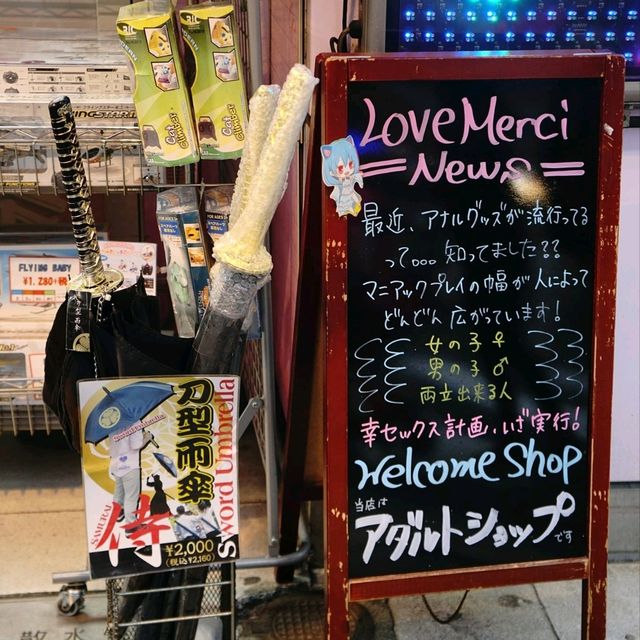 Love Merci
News
最近、アナルグッズが流行ってる
って。。。知ってました??
マニアックプレイの幅が人によって
どんどん広がっています!
女の子♀
男の子♂
両立出来る人
幸セックス計画、いざ実行!
Welcome Shop
当店は
アダルトショップです
FLYING BABY
¥1,280+税
刀型雨傘
Sword Umbrella
SAMURAI
侍
¥2,000
(税込¥2,160)
散水